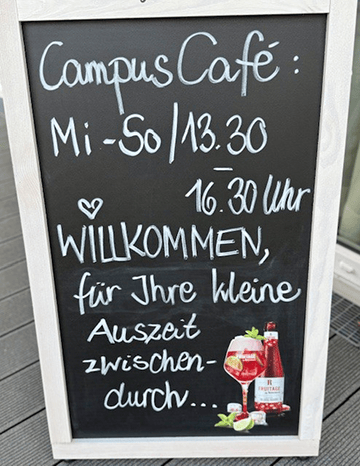 Campus Café :
Mi - So / 13.30
–
16.30 Uhr
WILLKOMMEN,
für Ihre kleine
Auszeit
zwischen-
durch...
FRUITAGE